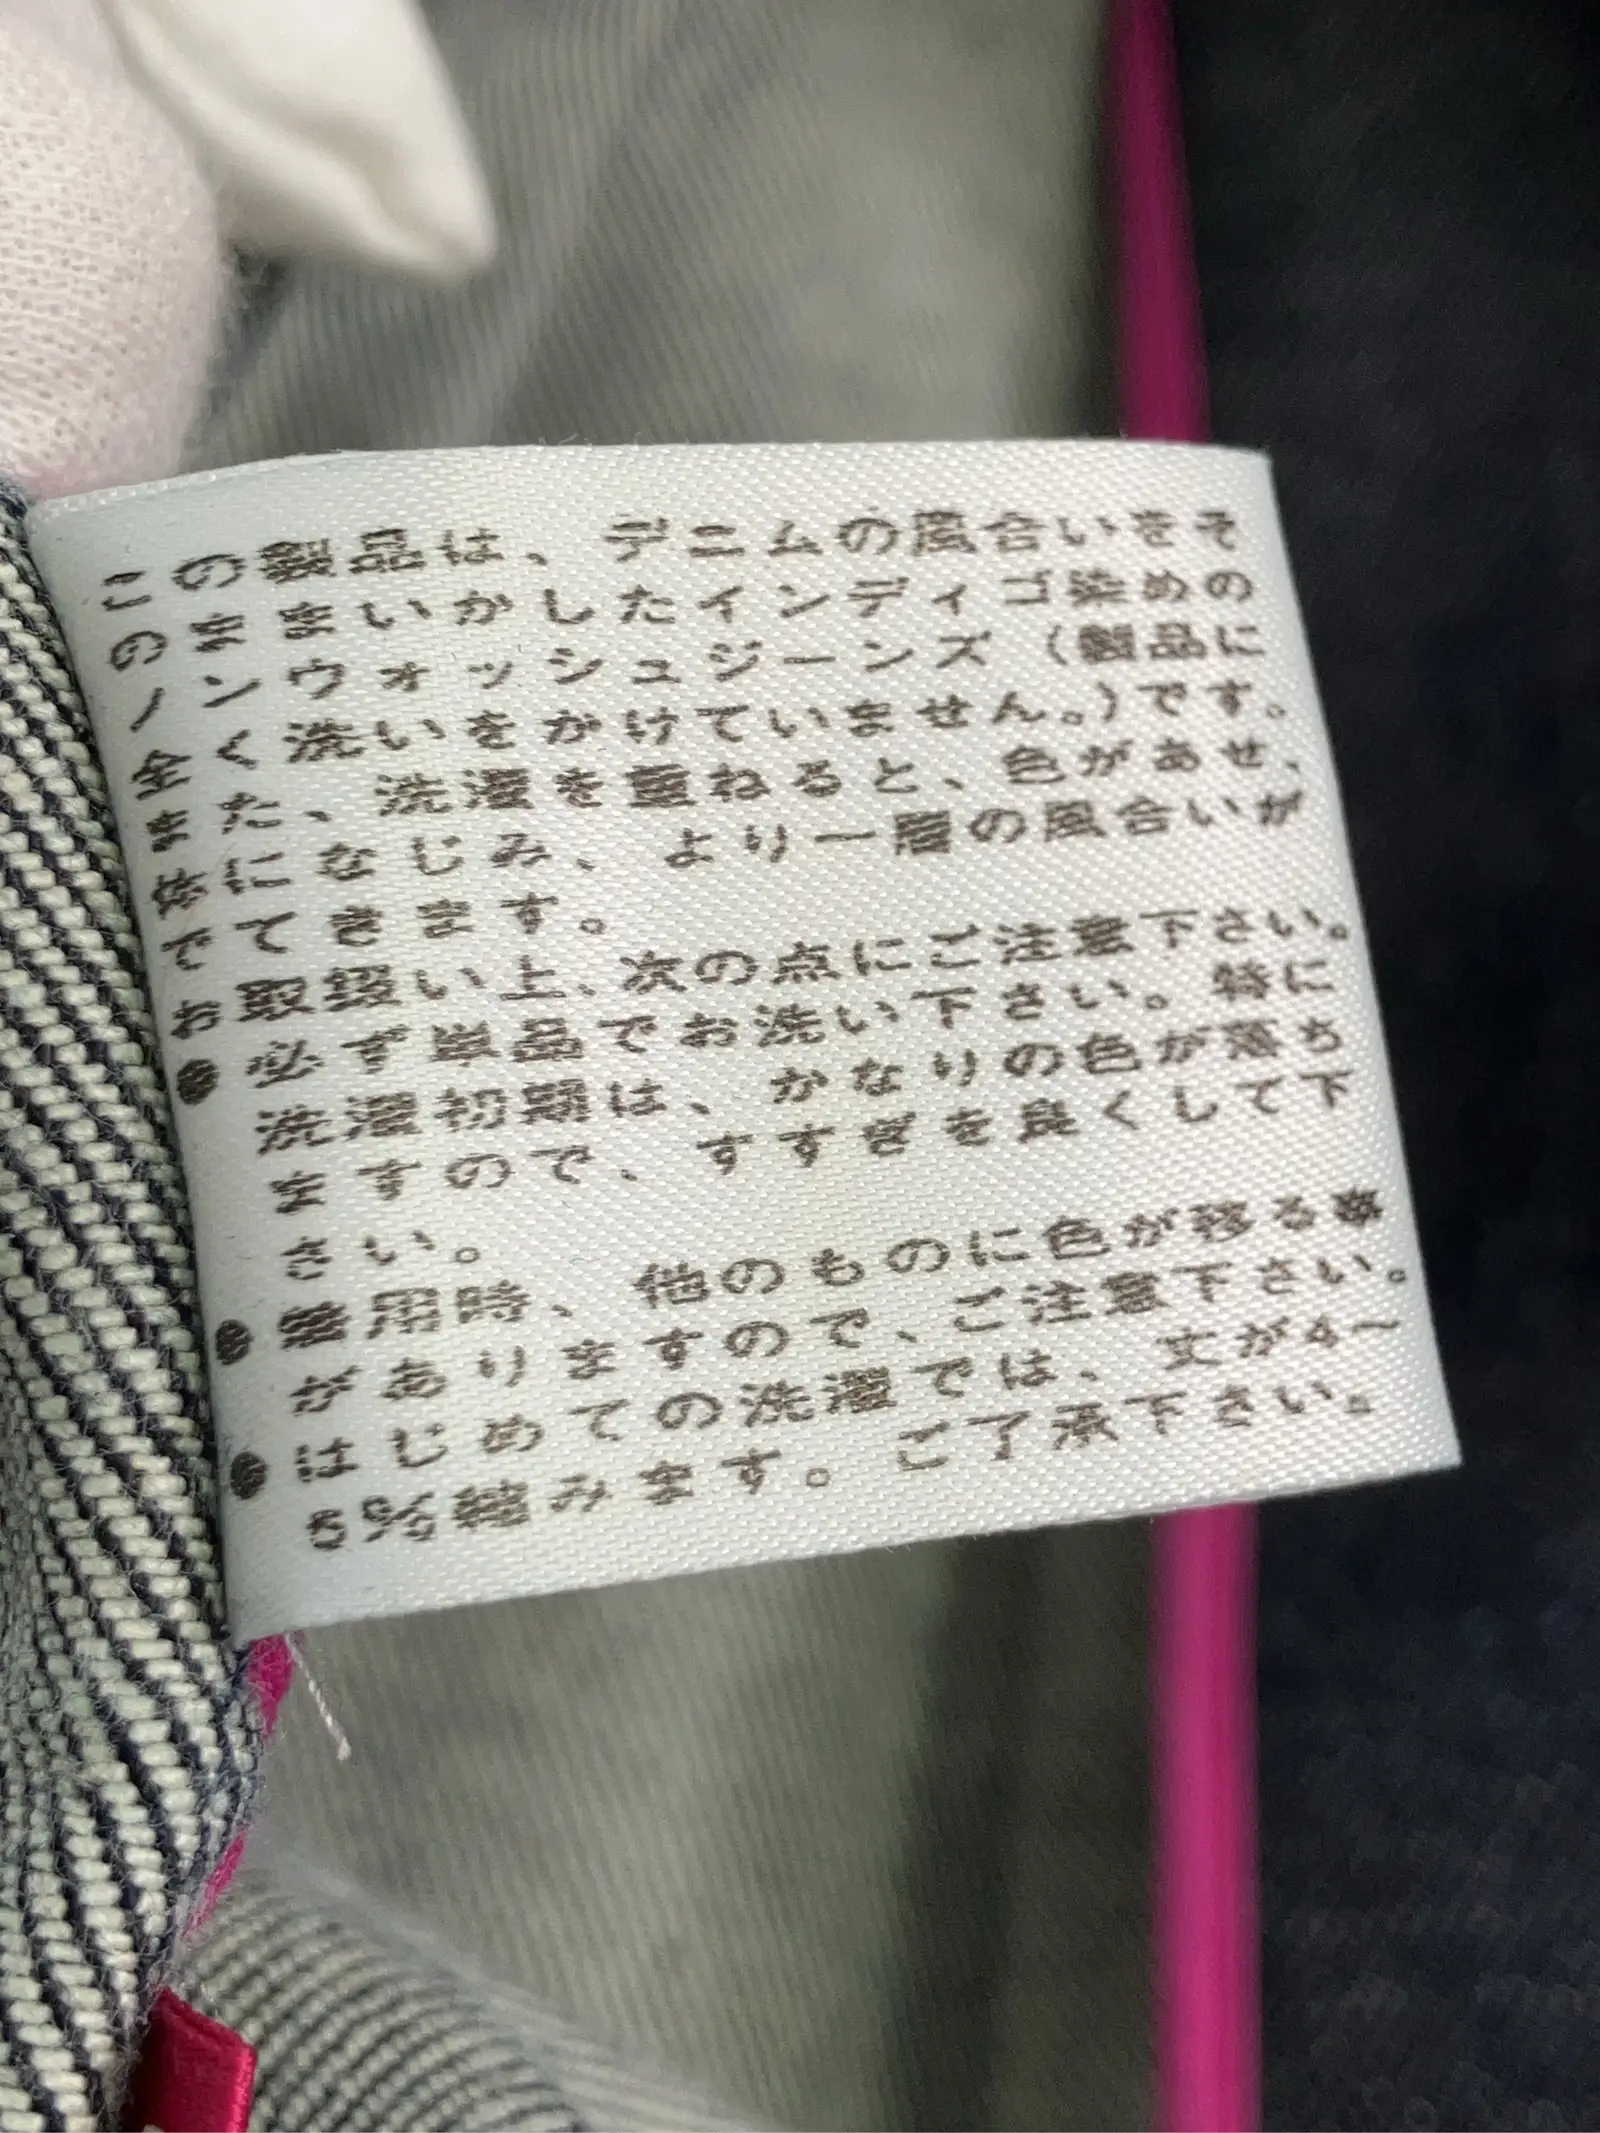 この製品は、デニムの風合いをそ
のままいかしたインディゴ染めの
ノンウォッシュジーンズ（製品に
全く洗いをかけていません。）です。
また、洗濯を重ねると、色があせ、
体になじみ、より一層の風合いが
でてきます。
お取扱い上、次の点にご注意下さい。
●必ず単品でお洗い下さい。特に
洗濯初期は、かなりの色が落ち
ますので、すすぎを良くして下
さい。
●着用時、他のものに色が移る事
がありますので、ご注意下さい。
●はじめての洗濯では、丈が4〜
5%縮みます。ご了承下さい。